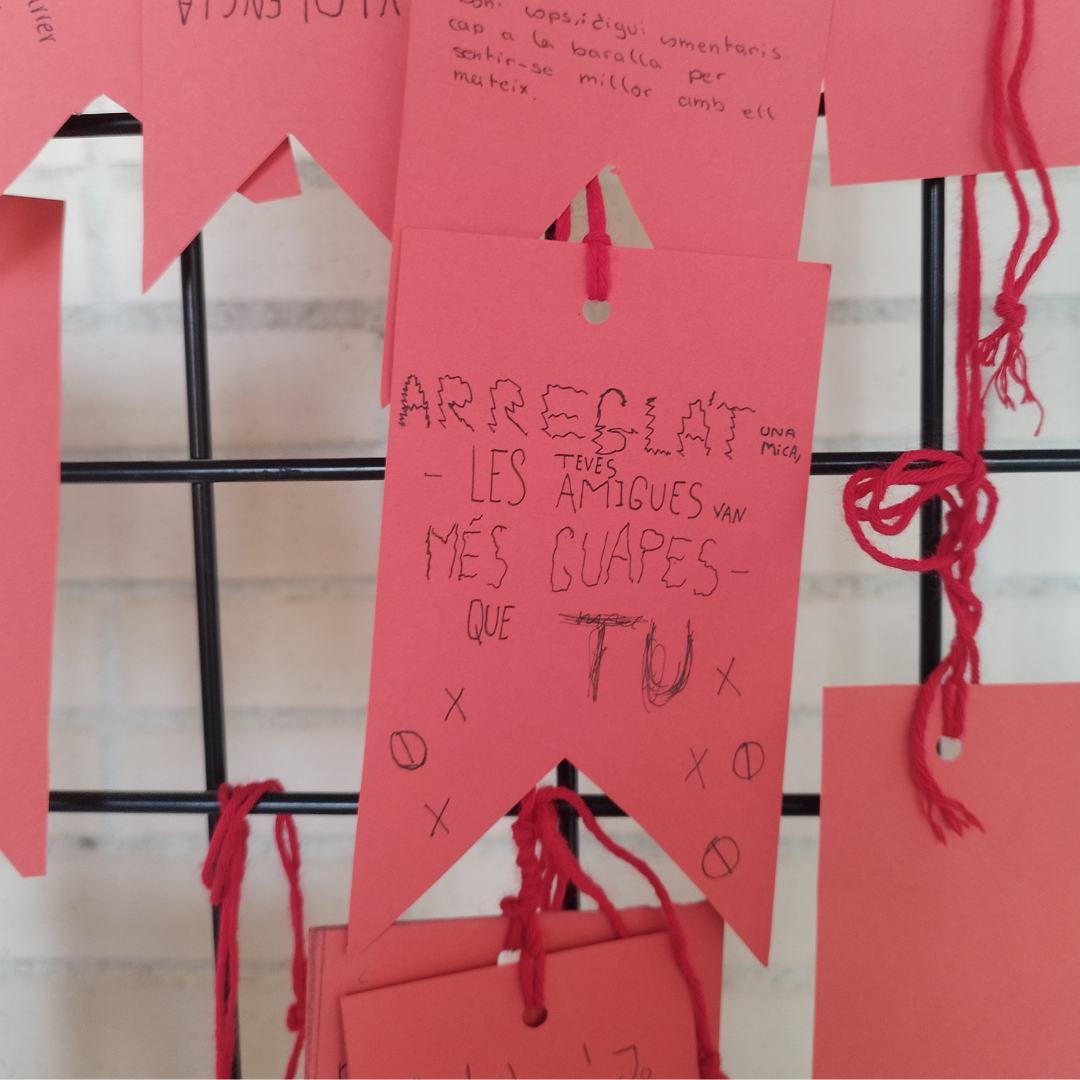 VIOLÈNCIA
cops, i digui comentaris
cap a la baralla per
sentir-se millor amb ell
mateix.
ARREGLA'T UNA
MICA,
- LES TEVES
AMIGUES VAN
MÉS GUAPES-
QUE TU